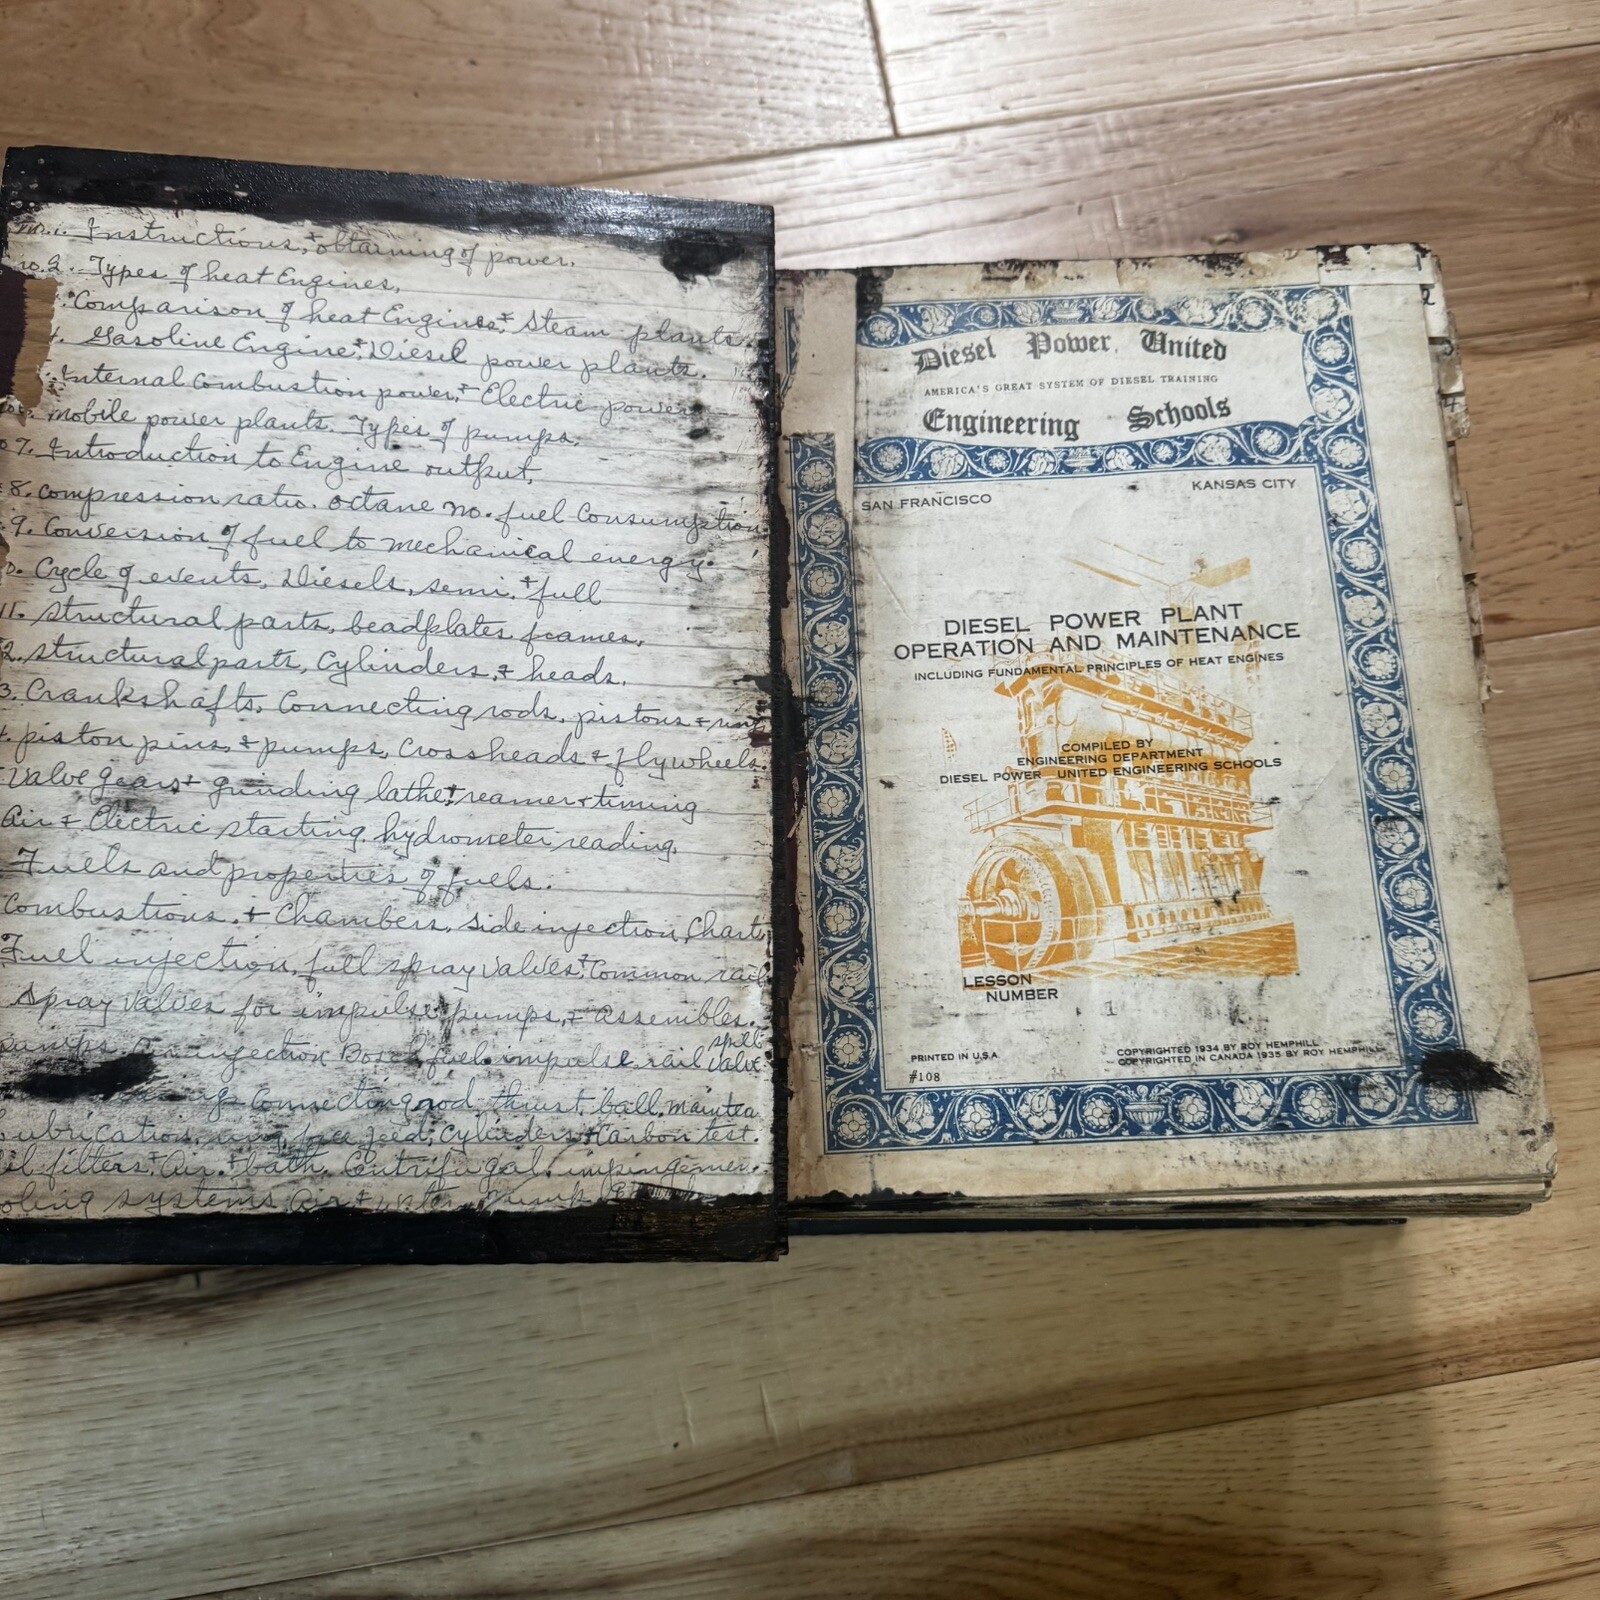 no.1. Instructions, + obtaining of power.
no.2. Types of heat Engines,
Comparison of heat Engines + Steam plants
4. Gasoline Engine + Diesel power plants.
Internal Combustion power, + Electric power
mobile power plants. Types of pumps.
7. Introduction to Engine output,
8. compression ratio. octane no. fuel Consumption
9. Conversion of fuel to mechanical energy.
0. Cycle of events, Diesels, semi, + full
11. structural parts, beadplates frames,
2. structural parts, Cylinders, + heads.
3. Crankshafts, Connecting rods, pistons + rings
4. piston pins, + pumps, Crossheads + flywheels.
Valve gears + grinding lathe, + reamer + timing
Air + Electric starting, hydrometer reading,
Fuels and properties of fuels.
Combustions, + Chambers, side injection, Chart,
Fuel injection, full spray valves + Common rail
Spray valves for impulse pumps, + assembles.
pumps injection Bosch fuel impulse rail spill valve
Connecting rod thrust ball, maintea
Lubrication, ring, free feed, cylinders + Carbon test.
oil filters + Air + bath. Centrifugal, impingemen
oling systems Air + water. Pump
Diesel Power United
AMERICA'S GREAT SYSTEM OF DIESEL TRAINING
Engineering Schools
SAN FRANCISCO KANSAS CITY
DIESEL POWER PLANT
OPERATION AND MAINTENANCE
INCLUDING FUNDAMENTAL PRINCIPLES OF HEAT ENGINES
COMPILED BY
ENGINEERING DEPARTMENT
DIESEL POWER UNITED ENGINEERING SCHOOLS
LESSON
NUMBER 1
PRINTED IN U.S.A
COPYRIGHTED 1934 BY ROY HEMPHILL
COPYRIGHTED IN CANADA 1935 BY ROY HEMPHILL
#108
1
2
4